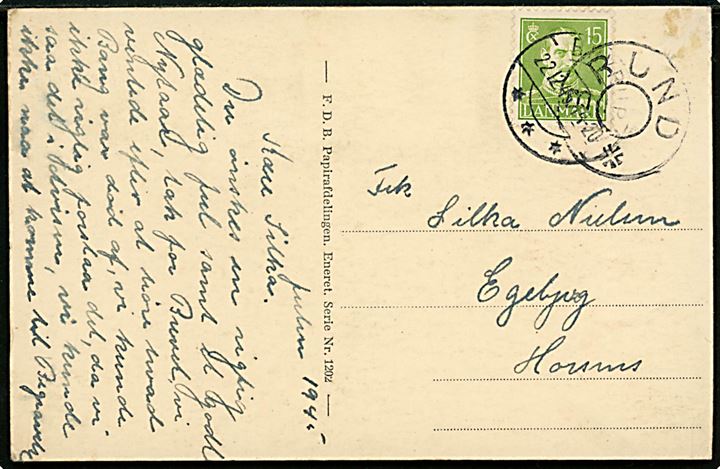 Julen 1945
Kære Silka.
Du ønskes en rigtig
glædelig Jul samt et Godt
Nytaar, tak for Brevet, vi
ventede efter at høre hvad
Bang var død af, vi kunde
ikke rigtig forstaa det, da vi
saa det i Avisen, vi kunde
ikke naa at komme til Begravels
— F. D. B. Papirafdelingen. Eneret. Serie Nr. 1202 —
15
DANMARK
BRUND
22.12.45
Frk
Silka Nielsen
Egebjerg
Horsens